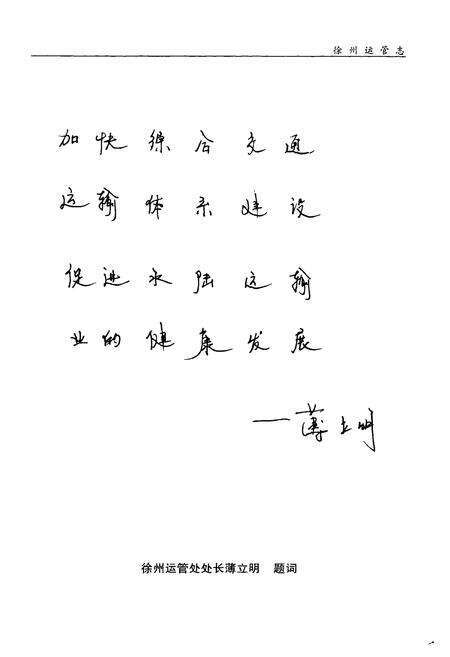 徐州运管志
加快综合交通
运输体系建设
促进水陆运输
业的健康发展
——薄立明
徐州运管处处长薄立明 题词